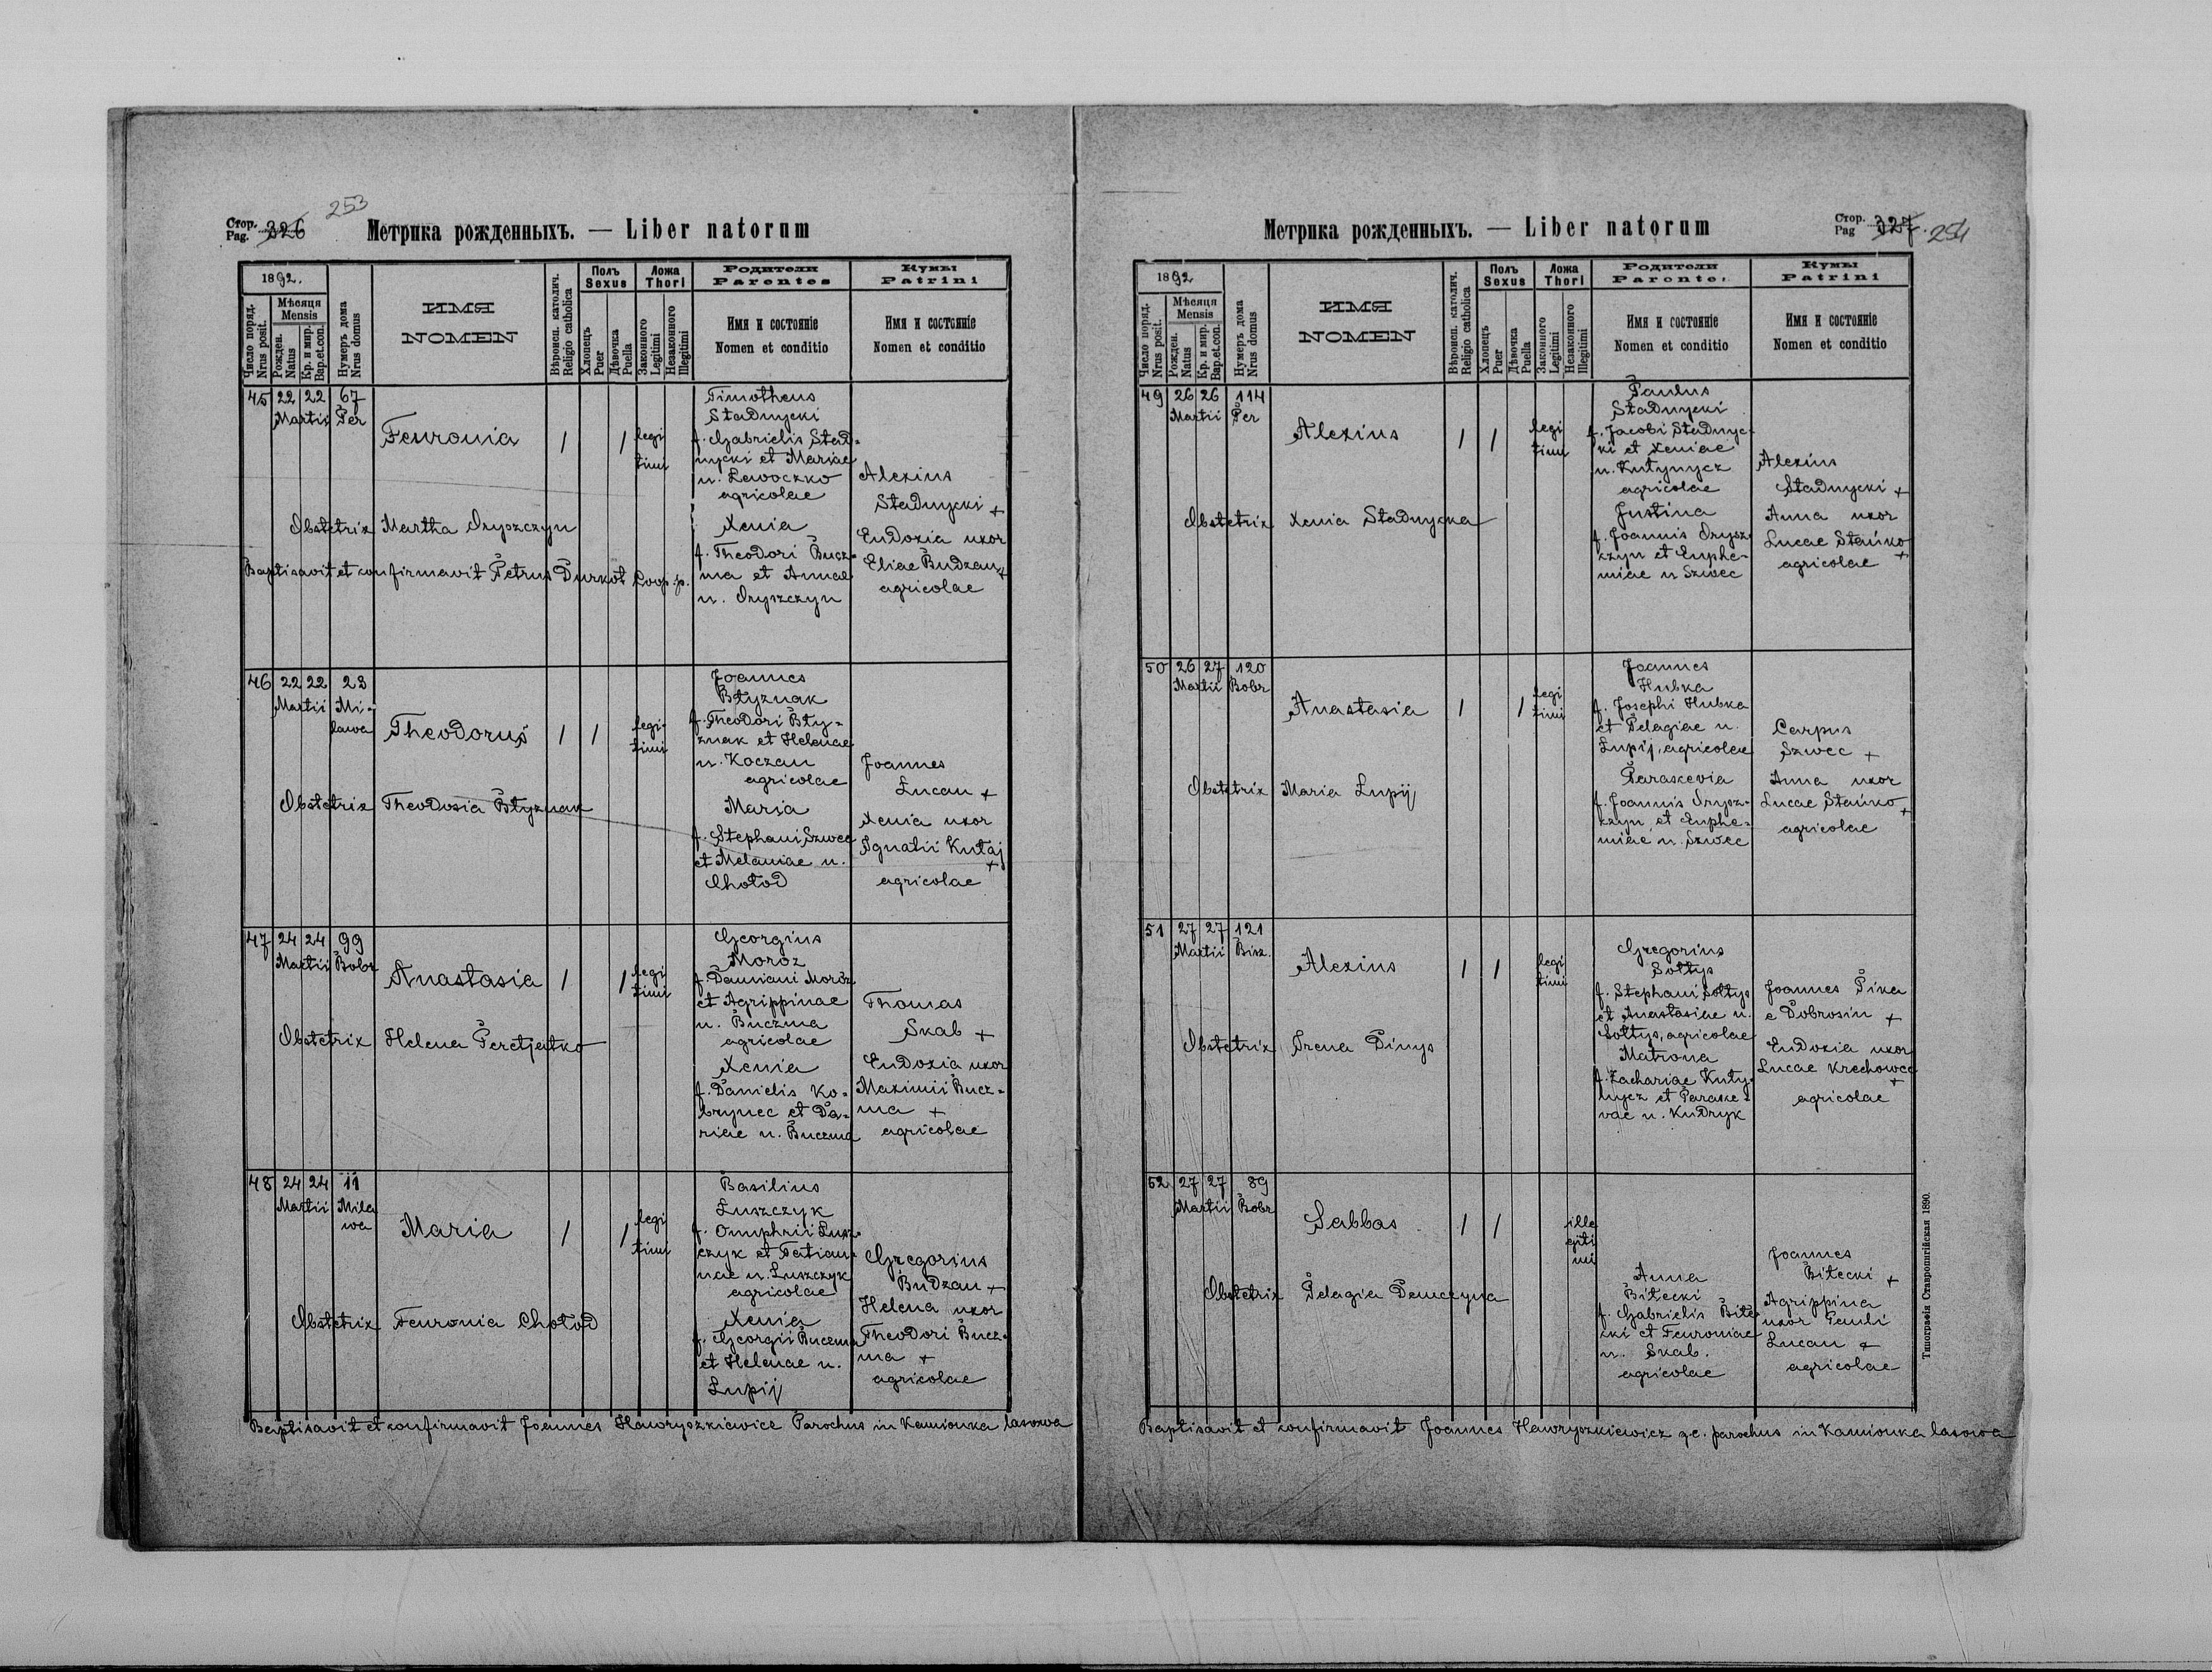 253
Стор. Pag. 326
Метрика рожденныхъ. — Liber natorum
1892.
Число поряд. Nrus posit.
Мѣсяця Mensis
Рожден. Natus
Кр. и мир. Bap. et con.
Нумеръ дома Nrus domus
ИМЯ
NOMEN
Вѣроисп. католич. Religio catholica
Полъ Sexus
Хлопецъ Puer
Дѣвочка Puella
Ложа Thori
Законного Legitimi
Незаконного Illegitimi
Родители Parentes
Имя и состояніе
Nomen et conditio
Кумы Patrini
Имя и состояніе
Nomen et conditio
45 22 22 67
Martii Per
Feuronia
1 1 legi
timi
Timotheus
Stadnycki
f. Gabrielis Stad-
nycki et Mariae
n. Lewoczko
agricolae
Xenia
f. Theodori Bucz-
ma et Annae
n. Oryszczyn
Alexius
Stadnycki +
Eudoxia uxor
Eliae Budzan +
agricolae
Obstetrix Martha Oryszczyn
Baptisavit et confirmavit Petrus Durkot Coop. p.
46 22 22 23
Martii Mi-
lawa
Theodorus
1 1 legi-
timi
Joannes
Błyznak
f. Theodori Bły-
znak et Helenae
n. Koczan
agricolae
Maria
f. Stephani Szwec
et Melaniae n.
Chołod
Joannes
Lucan +
Xenia uxor
Ignatii Kutaj
+
agricolae
Obstetrix Theodosia Błyznak
47 24 24 99
Martii Bobr
Anastasia
1 1 legi
timi
Georgius
Moroz
f. Damiani Moroz
et Agrippinae
n. Buczma
agricolae
Xenia
f. Danielis Ko-
brynec et Da-
riae n. Buczma
Thomas
Skab +
Eudoxia uxor
Maximii Bucz-
ma +
agricolae
Obstetrix Helena Peretjatko
48 24 24 11
Martii Mila
wa
Maria
1 1 legi
timi
Basilius
Łuszczyk
f. Onuphrii Łusz-
czyk et Tatian-
nae n. Łuszczyk
agricolae
Xenia
f. Georgii Buczma
et Helenae n.
Łupij
Gregorius
Budzan +
Helena uxor
Theodori Bucz-
ma +
agricolae
Obstetrix Feuronia Chołod
Baptisavit et confirmavit Joannes Hawryszkiewicz Parochus in Kamionka lasowa
Метрика рожденныхъ. — Liber natorum
Стор. Pag 327. 254
1892
Число поряд. Nrus posit.
Мѣсяця Mensis
Рожден. Natus
Кр. и мир. Bap. et con.
Нумеръ дома Nrus domus
ИМЯ
NOMEN
Вѣроисп. католич. Religio catholica
Полъ Sexus
Хлопецъ Puer
Дѣвочка Puella
Ложа Thori
Законного Legitimi
Незаконного Illegitimi
Родители Parente.
Имя и состояніе
Nomen et conditio
Кумы Patrini
Имя и состояніе
Nomen et conditio
49 26 26 114
Martii Per
Alexius
1 1 legi
timi
Paulus
Stadnycki
f. Jacobi Stadnyc-
ki et Xeniae
n. Kutynycz
agricolae
Justina
f. Joannis Orysz-
czyn et Euphe-
miae n Szwec
Alexius
Stadnycki +
Anna uxor
Lucae Stańko
+
agricolae
Obstetrix Xenia Stadnycka
50 26 27 120
Martii Bobr
Anastasia
1 1 legi
timi
Joannes
Hubka
f. Josephi Hubka
et Pelagiae n.
Łupij, agricolae
Paraskevia
f. Joannis Orysz-
czyn et Euphe-
miae n. Szwec
Carpus
Szwec +
Anna uxor
Lucae Stańko +
agricolae
Obstetrix Maria Łupij
51 27 27 121
Martii Bisz.
Alexius
1 1 legi
timi
Gregorius
Sołtys
f. Stephani Sołtys
et Anastasiae n.
Sołtys, agricolae
Matrona
f. Zachariae Kuty-
nycz et Paraske-
vae n. Kudryk
Joannes Pika
e Dobrosin +
Eudoxia uxor
Lucae Krechowec
+
agricolae
Obstetrix Irena Dinys
52 27 27 89
Martii Bobr
Sabbas
1 1 ille
giti
mi
Anna
Biłecki
f. Gabrielis Biłe-
cki et Feuroniae
n. Skab.
agricolae
Joannes
Biłecki +
Agrippina
uxor Pauli
Lucan +
agricolae
Obstetrix Pelagia Demczyna
Baptisavit et confirmavit Joannes Hawryszkiewicz g.c. parochus in Kamionka lasowa
Типографія Ставропигійская 1890.